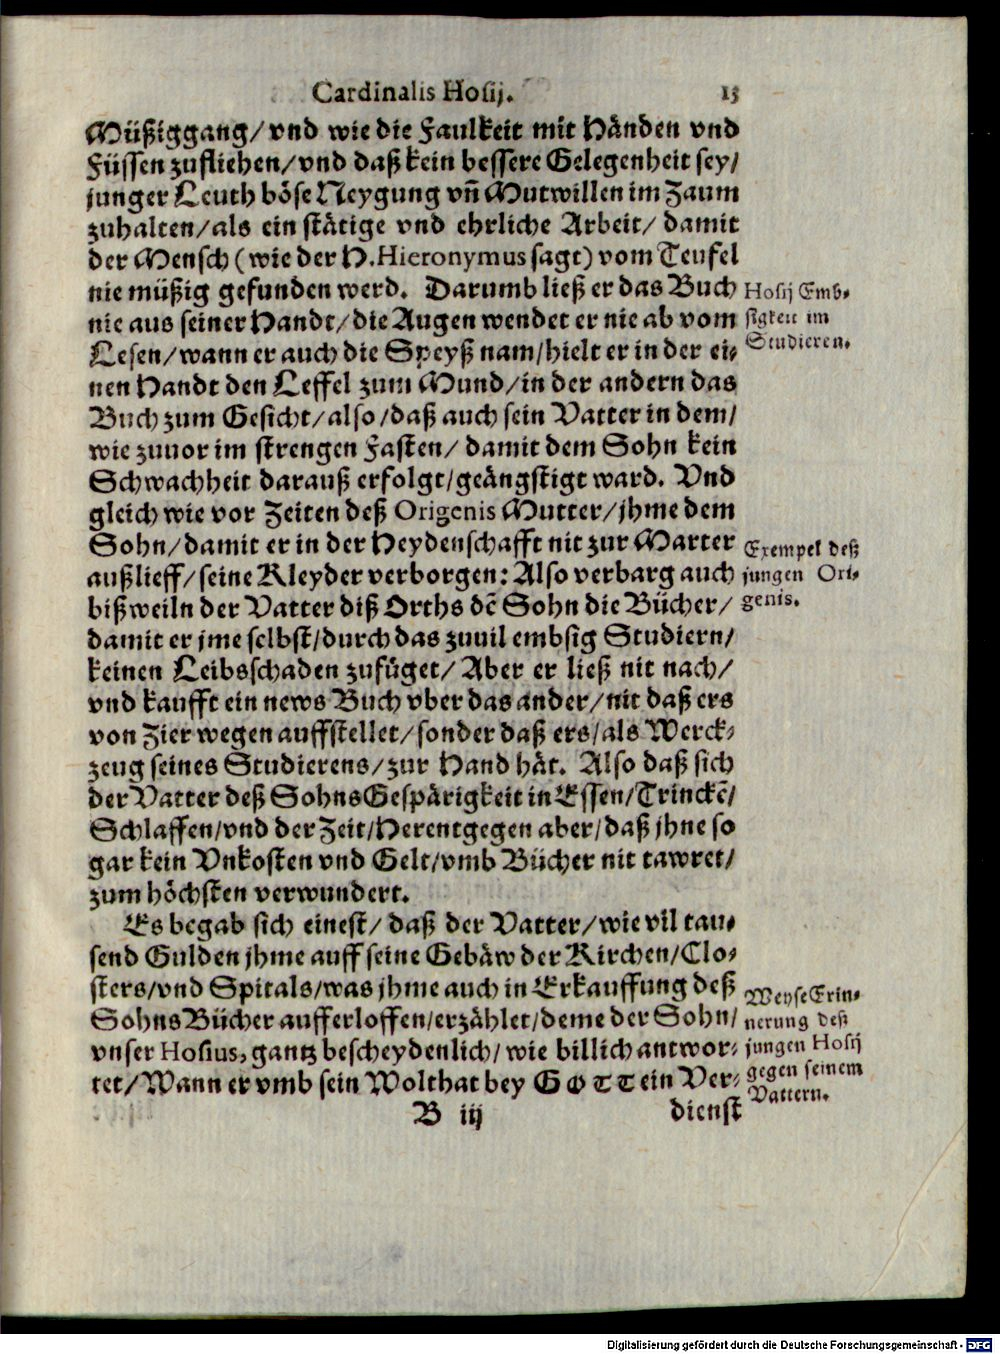 Cardinalis Hosij. 13
Müßiggang/ vnd wie die Faulkeit mit Händen vnd
Füssen zufliehen/ vnd daß kein bessere Gelegenheit sey/
junger Leuth böse Neygung vñ Mutwillen im Zaum
zuhalten/ als ein stätige vnd ehrliche Arbeit/ damit
der Mensch (wie der H. Hieronymus sagt) vom Teufel
nie müßig gefunden werd. Darumb ließ er das Buch
nie aus seiner Handt/ die Augen wendet er nie ab vom
Lesen/ wann er auch die Speyß nam/ hielt er in der ei-
nen Handt den Leffel zum Mund/ in der andern das
Buch zum Gesicht/ also/ daß auch sein Vatter in dem/
wie zuuor im strengen Fasten/ damit dem Sohn kein
Schwachheit darauß erfolgt/ geängstigt ward. Vnd
gleich wie vor Zeiten deß Origenis Mutter/ jhme dem
Sohn/ damit er in der Heydenschafft nit zur Marter
außlieff/ seine Kleyder verborgen: Also verbarg auch
bißweiln der Vatter diß Orths dē Sohn die Bücher/
damit er jme selbst/ durch das zuuil embsig Studiern/
keinen Leibsschaden zufüget/ Aber er ließ nit nach/
vnd kaufft ein news Buch vber das ander/ nit daß ers
von Zier wegen auffstellet/ sonder daß ers/ als Werck-
zeug seines Studierens/ zur Hand hät. Also daß sich
der Vatter deß Sohns Gespärigkeit in Essen/ Trinckē/
Schlaffen/ vnd der Zeit/ Herentgegen aber/ daß jhne so
gar kein Vnkosten vnd Gelt/ vmb Bücher nit tawret/
zum höchsten verwundert.
Es begab sich einest/ daß der Vatter/ wie vil tau-
send Gulden jhme auff seine Gebäw der Kirchen/ Clo-
sters/ vnd Spitals/ was jhme auch in Erkauffung deß
Sohns Bücher aufferloffen/ erzählet/ deme der Sohn/
vnser Hosius, gantz bescheydenlich/ wie billich antwor-
tet/ Wann er vmb sein Wolthat bey GOTT ein Ver-
B iij dienst
Hosij Emb-
sigkeit im
Studieren.
Exempel deß
jungen Ori-
genis.
Weyse Erin-
nerung deß
jungen Hosij
gegen seinem
Vattern.
Digitalisierung gefördert durch die Deutsche Forschungsgemeinschaft - DFG